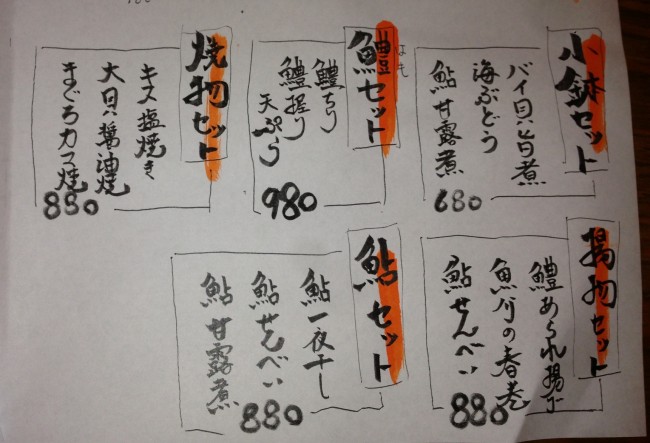 小鉢セット
バイ貝旨煮
海ぶどう
鮎甘露煮
680
鱧セット
はも
鱧ちり
鱧握り
天ぷら
980
焼物セット
キス塩焼き
大貝醤油焼
まぐろカマ焼
880
揚物セット
鱧あられ揚げ
魚介の春巻
鮎せんべい
880
鮎セット
鮎一夜干し
鮎せんべい
鮎甘露煮
880